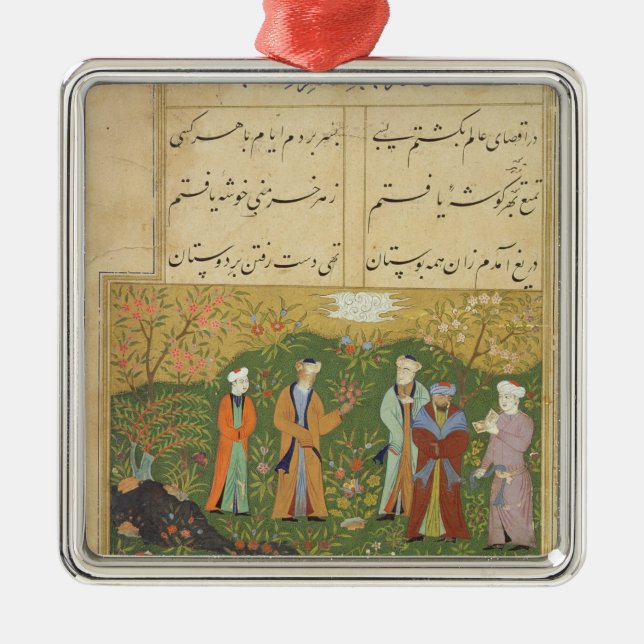 در اقصای عالم بگشتم بسی بسر بردم ایام با هر کسی
تمتع بهر گوشهٔ یافتم ز هر خرمنی خوشهٔ یافتم
دریغ آمدم زان همه بوستان تهی دست رفتن بر دوستان